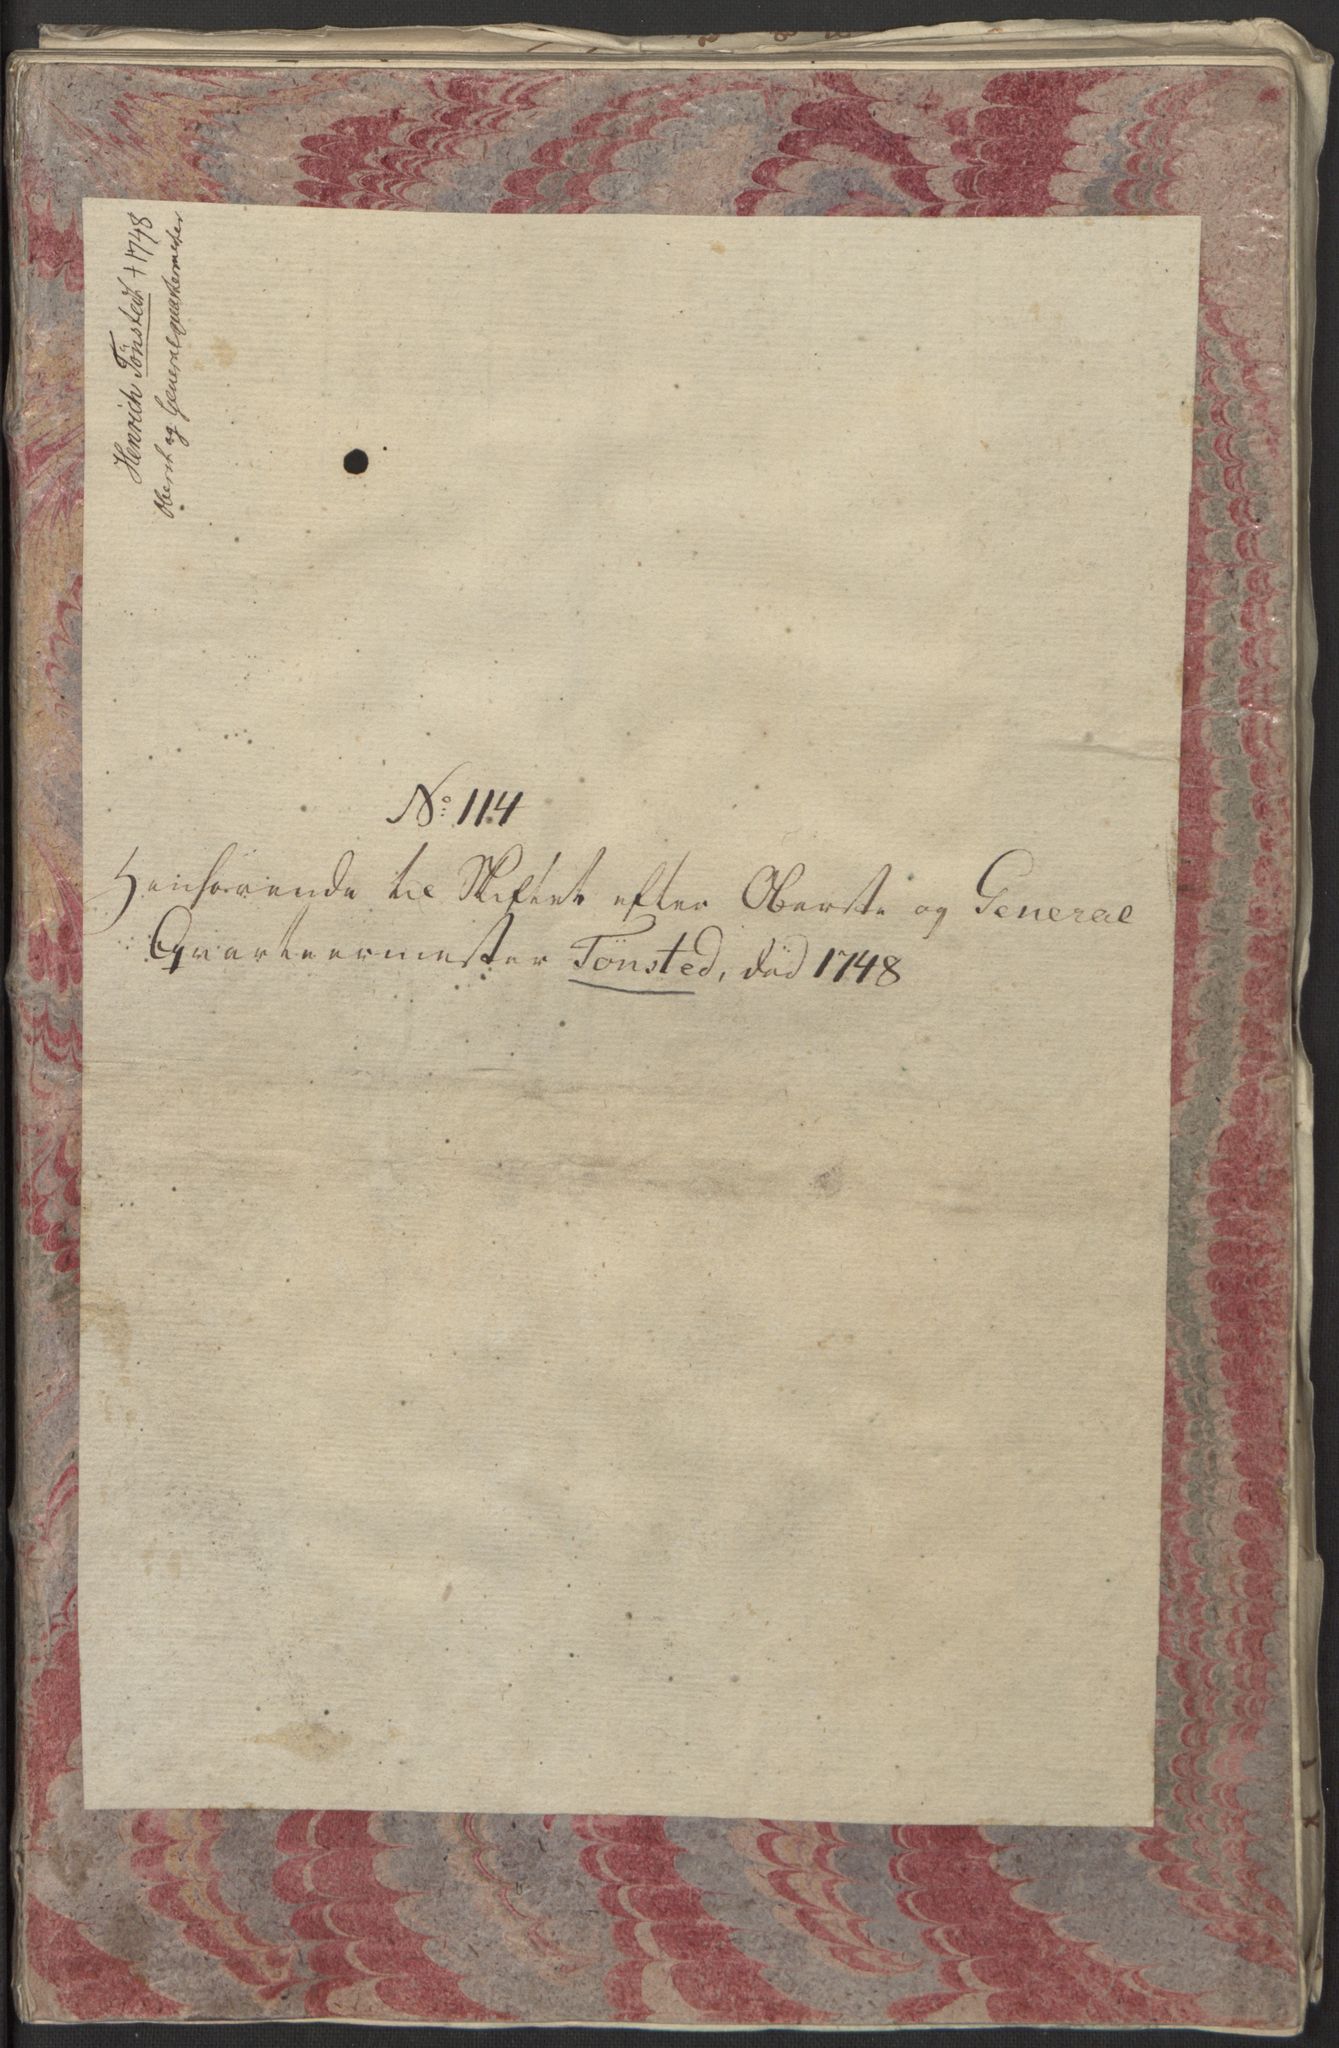 Henrich Tönsted † 1748
Oberst og Generalquartermester
No: 114
Henhørende til Skiftet efter Oberste og General
Qvarteermester Tönsted, död 1748